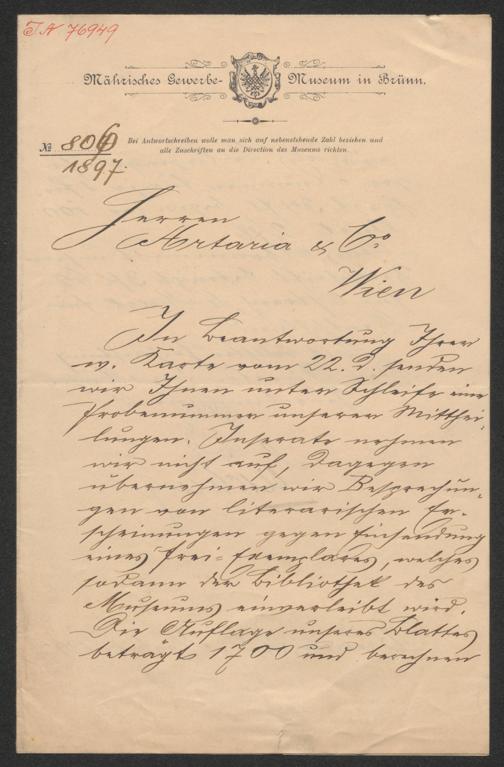 I.N. 76949
Mährisches Gewerbe-Museum in Brünn.
№ 806
1897.
Bei Antwortschreiben wolle man sich auf nebenstehende Zahl beziehen und
alle Zuschriften an die Direction des Museums richten.
Herren
Artaria & Co
Wien
In Beantwortung Ihrer
w. Karte vom 22. d. senden
wir Ihnen unter Schleife eine
Probenummer unserer Mitthei-
lungen. Inserate nehmen
wir nicht auf, dagegen
übernehmen wir Besprechun-
gen von literarischen Er-
scheinungen gegen Einsendung
eines Frei-Exemplares, welches
sodann der Bibliothek des
Museums einverleibt wird.
Die Auflage unseres Blattes
beträgt 1700 und berechnen